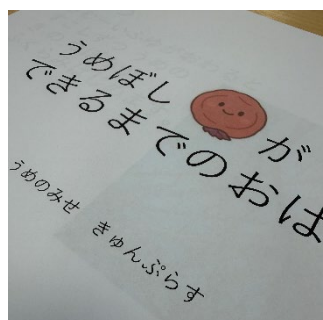 うめぼしが
できるまでのおは
うめのみせ きゅんぷらす